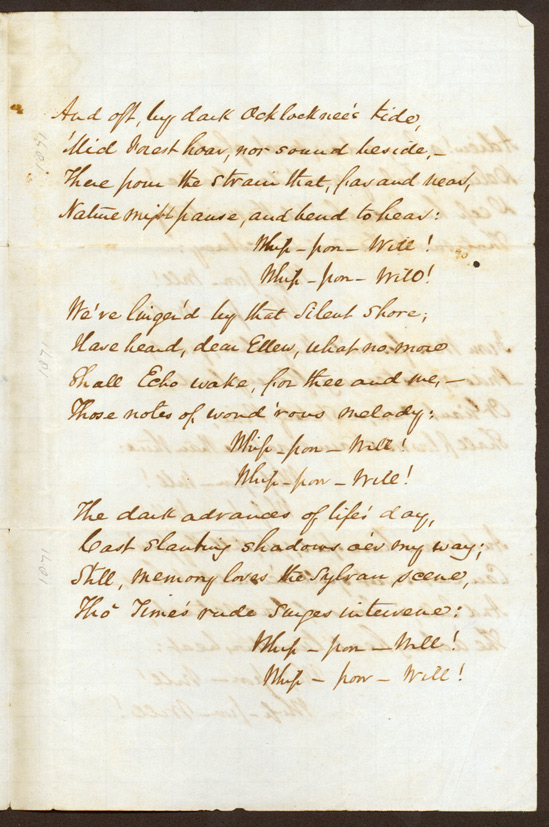 And oft, by dark Ocklocknee's tide,
'Mid Forest hoar, nor sound beside,—
There pour the strain that, far and near,
Nature might pause, and bend to hear:
Whip-poor-Will!
Whip-poor-Will!
We've linger'd by that silent shore;
Have heard, dear Ellen, what no more
Shall Echo wake, for thee and me,—
Those notes of wond'rous melody:
Whip-poor-Will!
Whip-poor-Will!
The dark advances of life's day,
Cast slanting shadows o'er my way;
Still, memory loves the Sylvan scene,
Tho' Time's rude Surges intervene:
Whip-poor-Will!
Whip-poor-Will!
1871
1871
1871